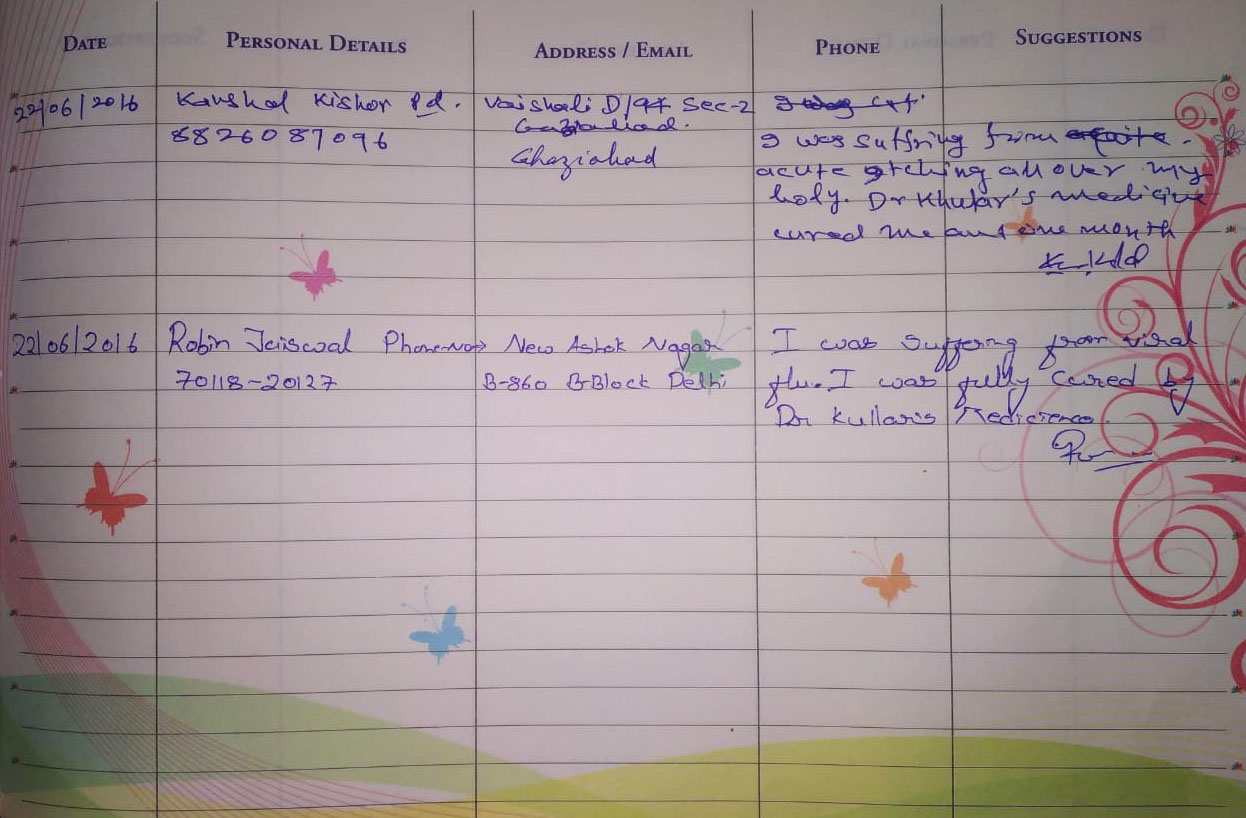 DATE PERSONAL DETAILS ADDRESS / EMAIL PHONE SUGGESTIONS
22/06/2016 Kaushal Kishor Pd. Vaishali D/94 Sec-2
8826087096
Ghaziabad
I was suffring from
acute etching all over my
boly. Dr Khullar's medicine
cured me one month
22/06/2016 Robin Jaiswal Phone No → New Ashok Nagar I was Suffering from viral
70118-20127 B-860 B-Block Delhi flu. I was fully cured by
Dr Kullar's Medicience.